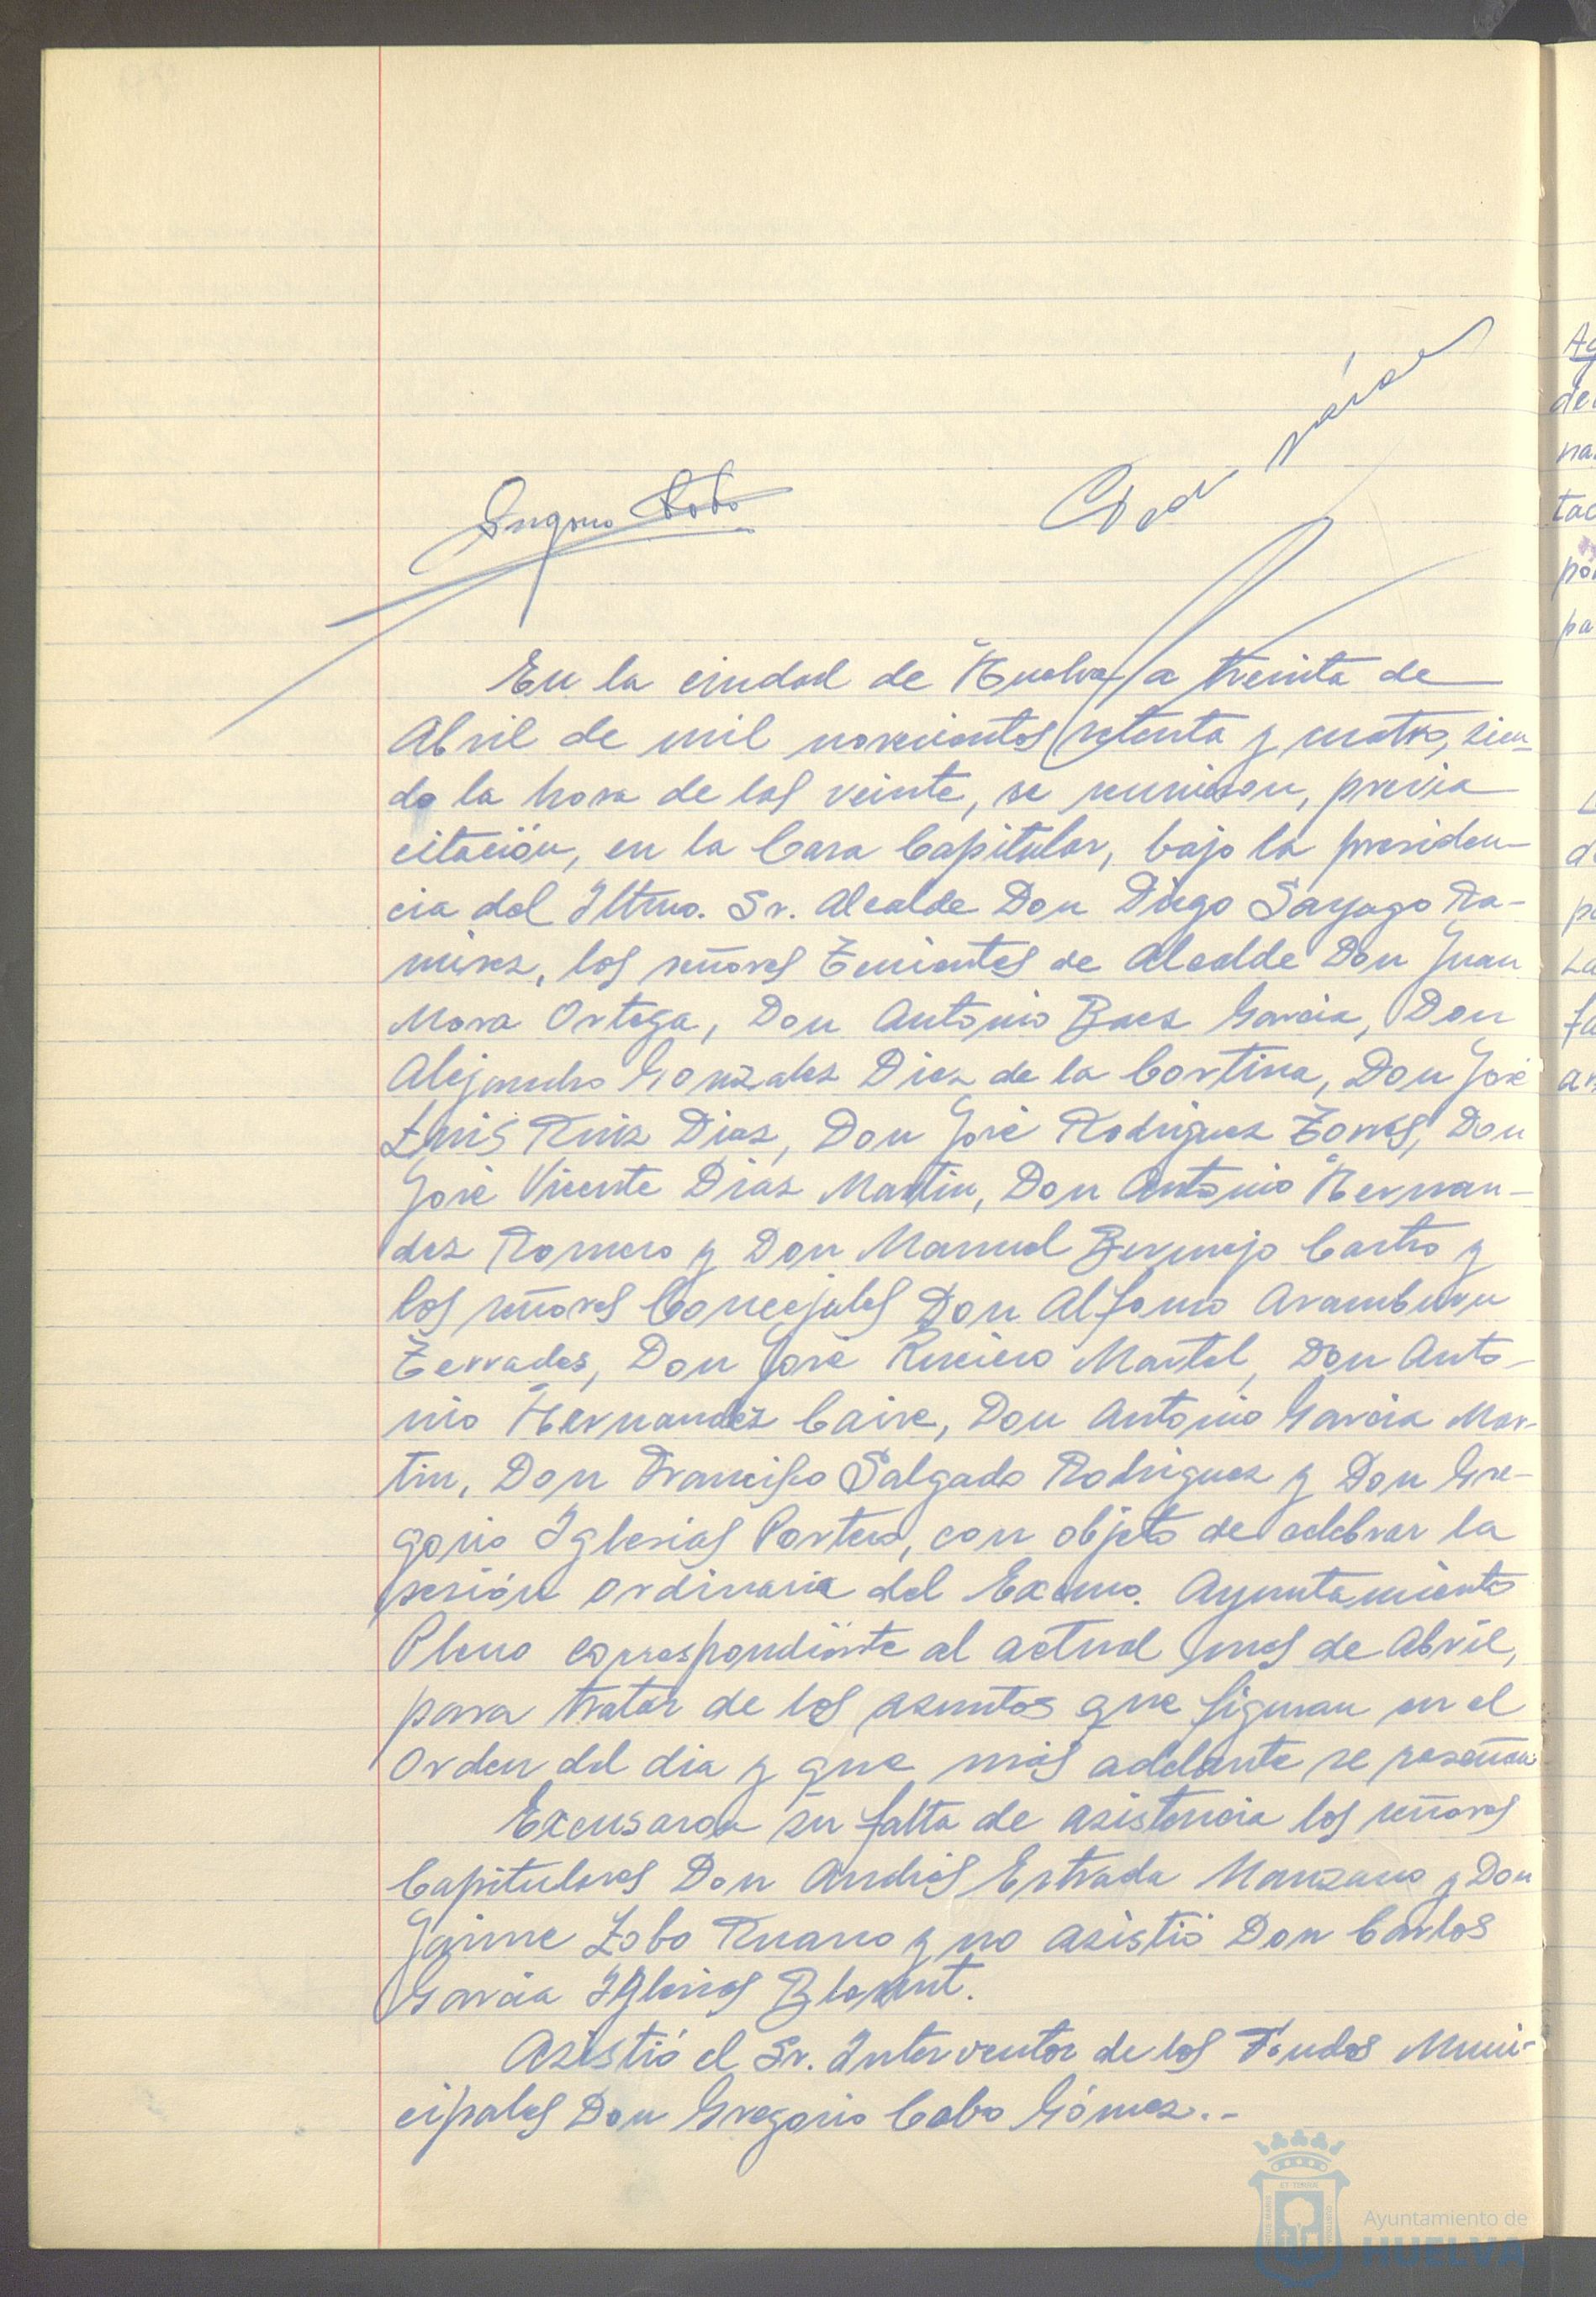 En la ciudad de Huelva a treinta de
Abril de mil novecientos setenta y cuatro, sien-
do la hora de las veinte, se reunieron, previa
citación, en la Casa Capitular, bajo la presiden-
cia del Iltmo. Sr. Alcalde Don Diego Sayago Ra-
mirez, los señores Tenientes de Alcalde Don Juan
Mora Ortega, Don Antonio Baez Garcia, Don
Alejandro Gonzalez Diez de la Cortina, Don José
Luis Ruiz Diaz, Don José Rodriguez Torres, Don
José Vicente Diaz Martin, Don Antonio Hernan-
dez Romero y Don Manuel Bermejo Castro y
los señores Concejales Don Alfonso Aramburu
Terrades, Don José Martel, Don Anto-
nio Hernandez Caire, Don Antonio Garcia Mar-
tin, Don Francisco Salgado Rodriguez y Don Gre-
gorio Iglesias Portero, con objeto de celebrar la
sesión ordinaria del Excmo. Ayuntamiento
Pleno correspondiente al actual mes de Abril,
para tratar de los asuntos que figuran en el
Orden del dia y que más adelante se reseñan.
Excusaron su falta de asistencia los señores
Capitulares Don Andrés Estrada Manzano y Don
Jaime Lobo Ruano y no asistió Don Carlos
Garcia Iglesias
Asistió el Sr. Interventor de los Fondos Muni-
cipales Don Gregorio Cabo Gómez.-
Ayuntamiento de
HUELVA